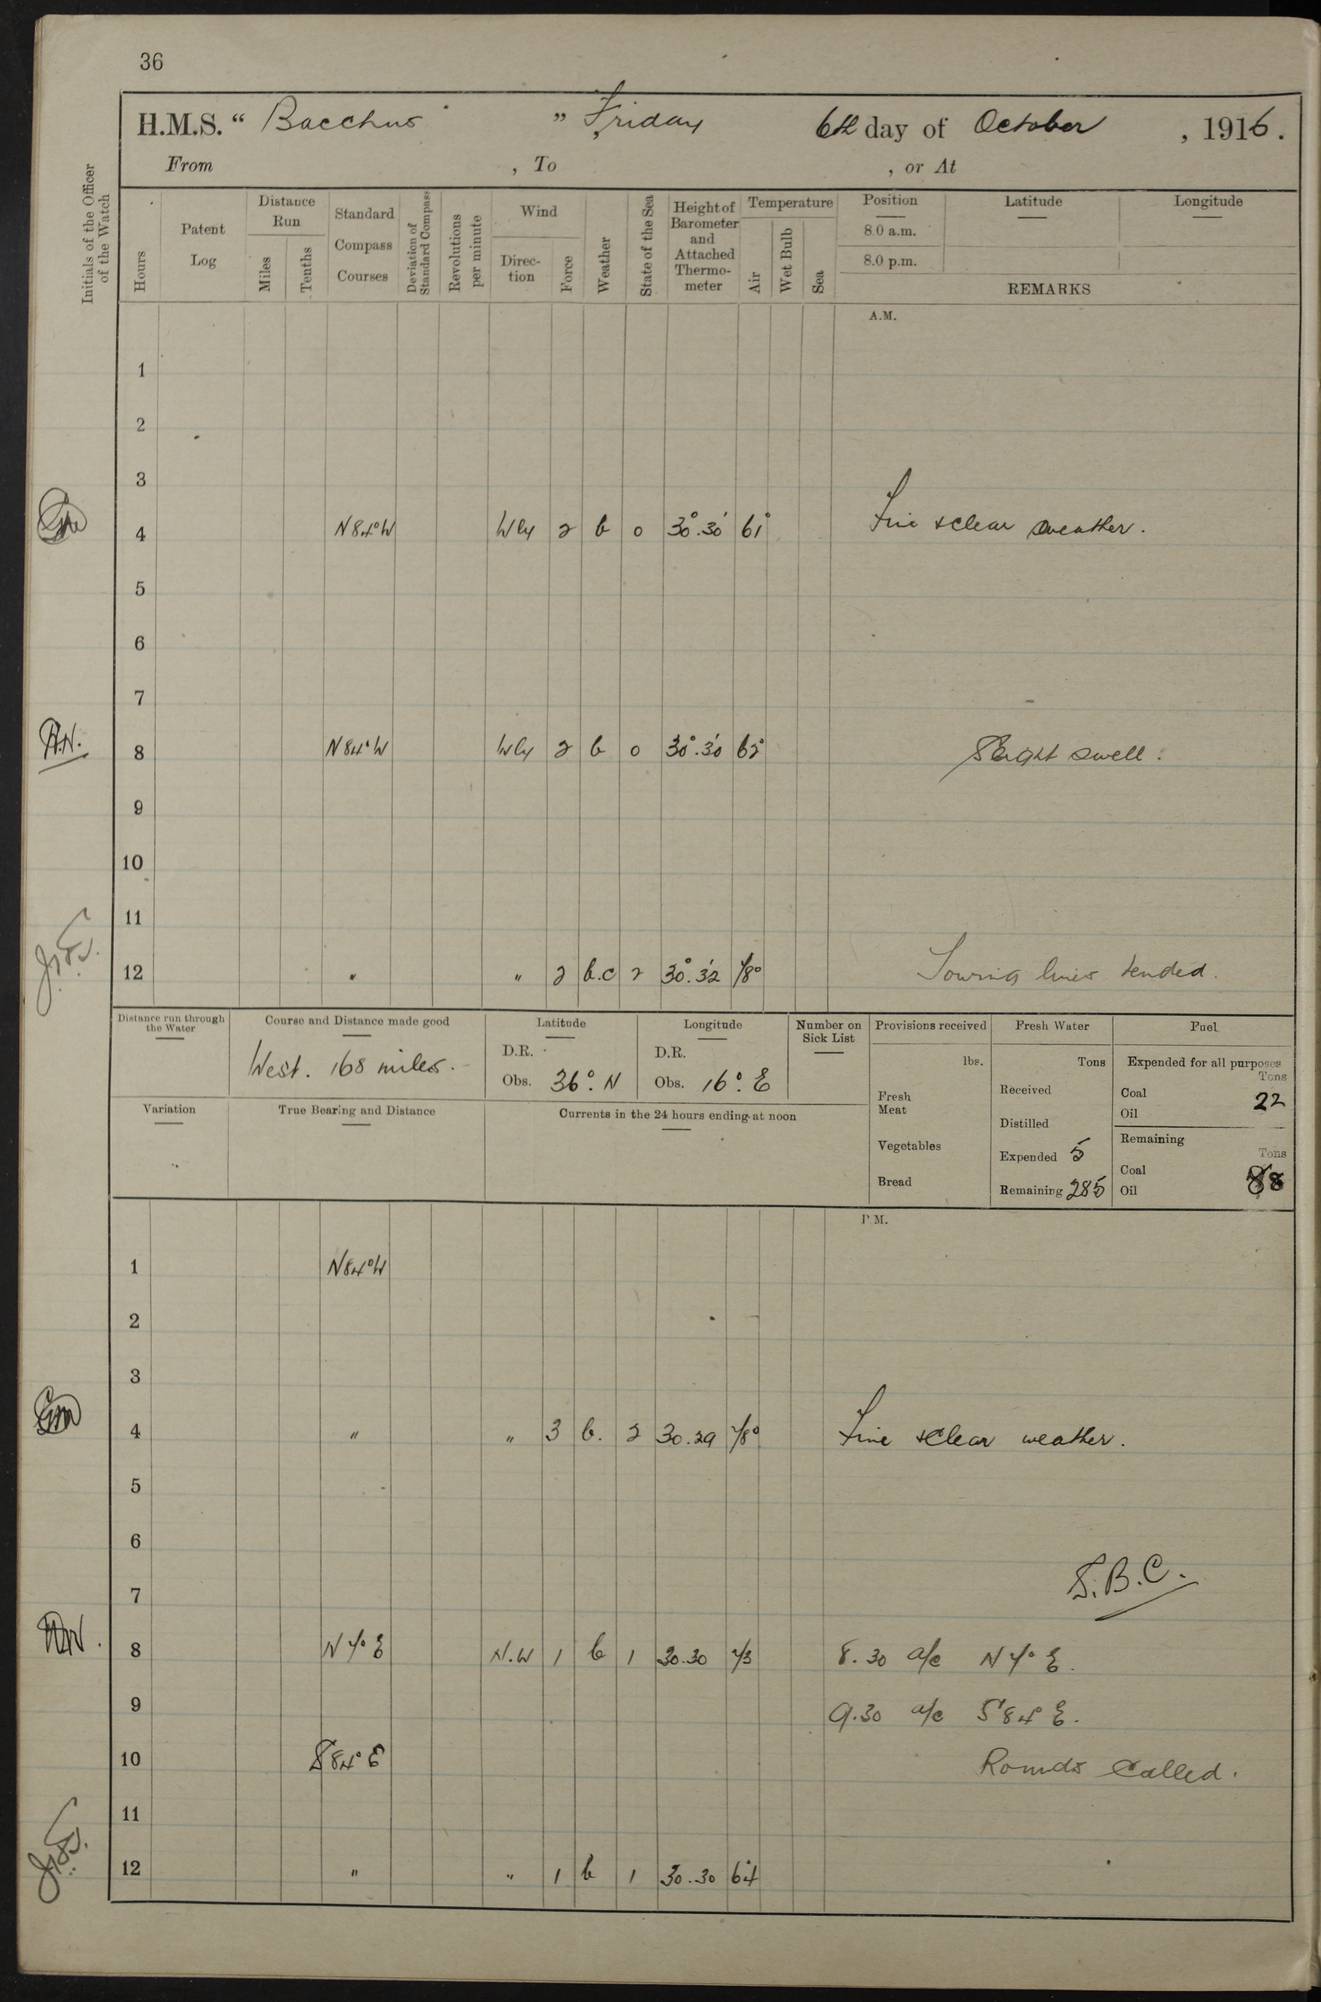 36
H.M.S. “ Bacchus ” Friday 6th day of October , 1916.
From , To , or At
Initials of the Officer of the Watch
Hours
Patent Log
Distance Run
Miles
Tenths
Standard Compass Courses
Deviation of Standard Compass
Revolutions per minute
Wind
Direction
Force
Weather
State of the Sea
Height of Barometer and Attached Thermometer
Temperature
Air
Wet Bulb
Sea
Position
8.0 a.m.
8.0 p.m.
Latitude
Longitude
REMARKS
A.M.
1
2
3
4 N84°W Wly 2 b 0 30°.30' 61° Fine & clear weather.
5
6
7
H.N. 8 N84°W Wly 2 b 0 30°.30' 62° Slight swell.
9
10
11
12 " " 2 b.c 2 30°.32' 78° Towing lines tended.
Distance run through the Water
Course and Distance made good
West. 168 miles.
Latitude
D.R.
Obs. 36°. N
Longitude
D.R.
Obs. 16°. E
Number on Sick List
Provisions received
lbs.
Fresh Meat
Vegetables
Bread
Fresh Water
Tons
Received
Distilled
Expended 5
Remaining 285
Fuel
Expended for all purposes
Tons
Coal 22
Oil
Remaining
Tons
Coal
Oil
Variation
True Bearing and Distance
Currents in the 24 hours ending at noon
P.M.
1 N84°W
2
3
4 " " 3 b. 2 30.29 78° Fine & clear weather.
5
6
7 S.B.C.
8 N7°E N.W 1 b 1 30.30 73 8.30 a/c N7°E.
9 9.30 a/c S84°E.
10 S84°E Rounds Called.
11
12 " " 1 b 1 30.30 64